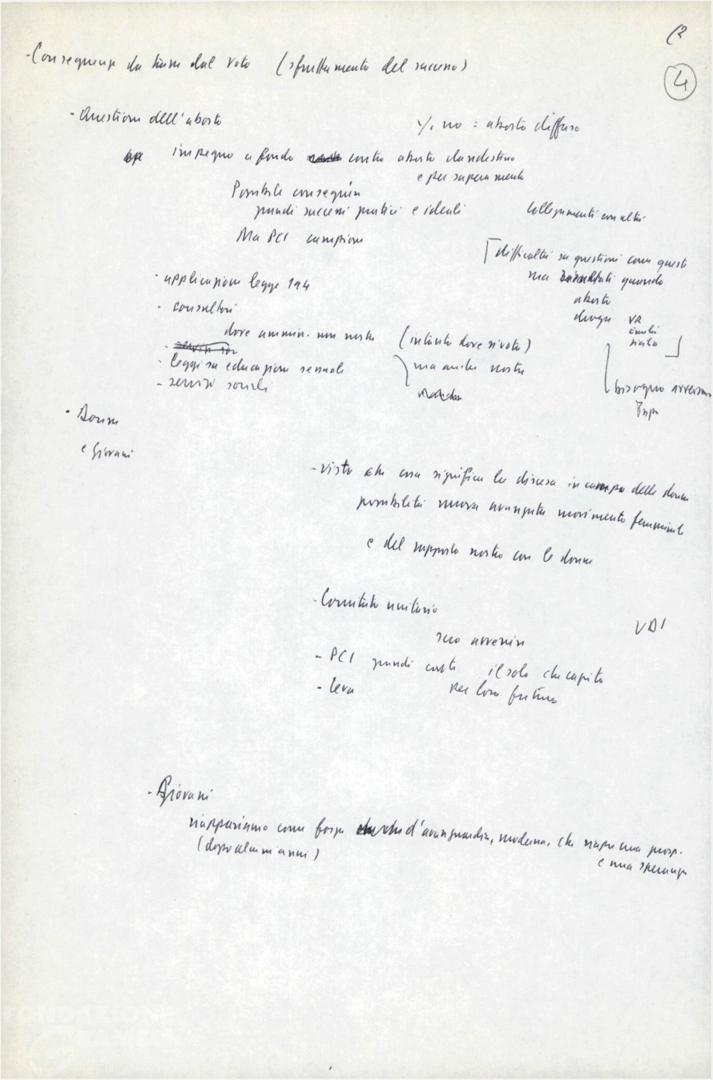 (2
4
- Conseguenze da trarre dal voto (sfruttamento del successo)
- Questione dell'aborto
no = aborto diffuso
impegno a fondo contro aborto clandestino
e per superamento
Possibile
grandi successi pratici e ideali
collegamenti con altri
Ma PCI campione
difficoltà su questioni come queste
ma quando
aborto
droga
- applicazione legge 194
- consultori
dove ammin. non nostre (intanto dove si vota)
ma anche nostre
- legge su educazione sessuale
- servizi sociali
bisogno
- Donne
e Giovani
- visto che cosa significa la discesa in campo delle donne
possibilità nuova avanzata movimento femminile
e del rapporto nostro con le donne
- Comitato unitario
suo avvenire
UDI
- PCI grandi il solo che capito
- leva per loro futuro
- Giovani
riappariamo come forza d'avanguardia, moderna, che riapre una prosp.
(dopo alcuni anni)
e una speranza
FONDAZIONE
GRAMSCI